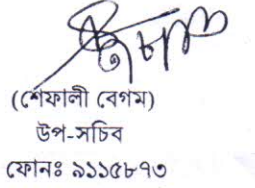 (শেফালী বেগম)
উপ-সচিব
ফোনঃ ৯১১৫৮৭৩